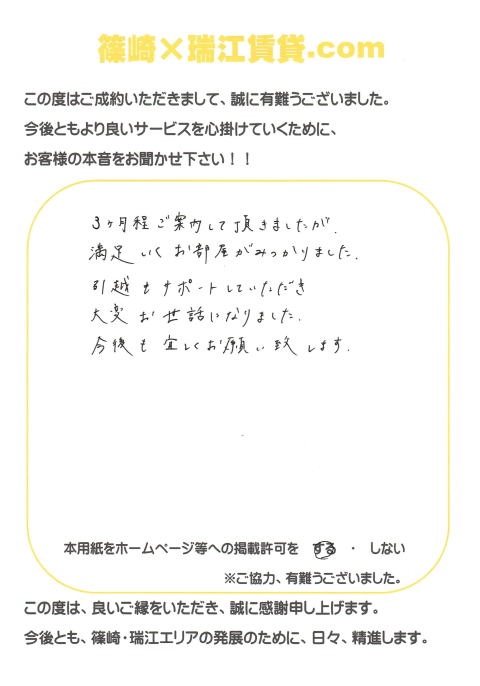 篠崎×瑞江賃貸.com
この度はご成約いただきまして、誠に有難うございました。
今後ともより良いサービスを心掛けていくために、
お客様の本音をお聞かせ下さい！！
3ヶ月程ご案内して頂きましたが、
満足いくお部屋がみつかりました。
引越もサポートしていただき
大変お世話になりました。
今後も宜しくお願い致します。
本用紙をホームページ等への掲載許可を する ・ しない
※ご協力、有難うございました。
この度は、良いご縁をいただき、誠に感謝申し上げます。
今後とも、篠崎・瑞江エリアの発展のために、日々、精進します。